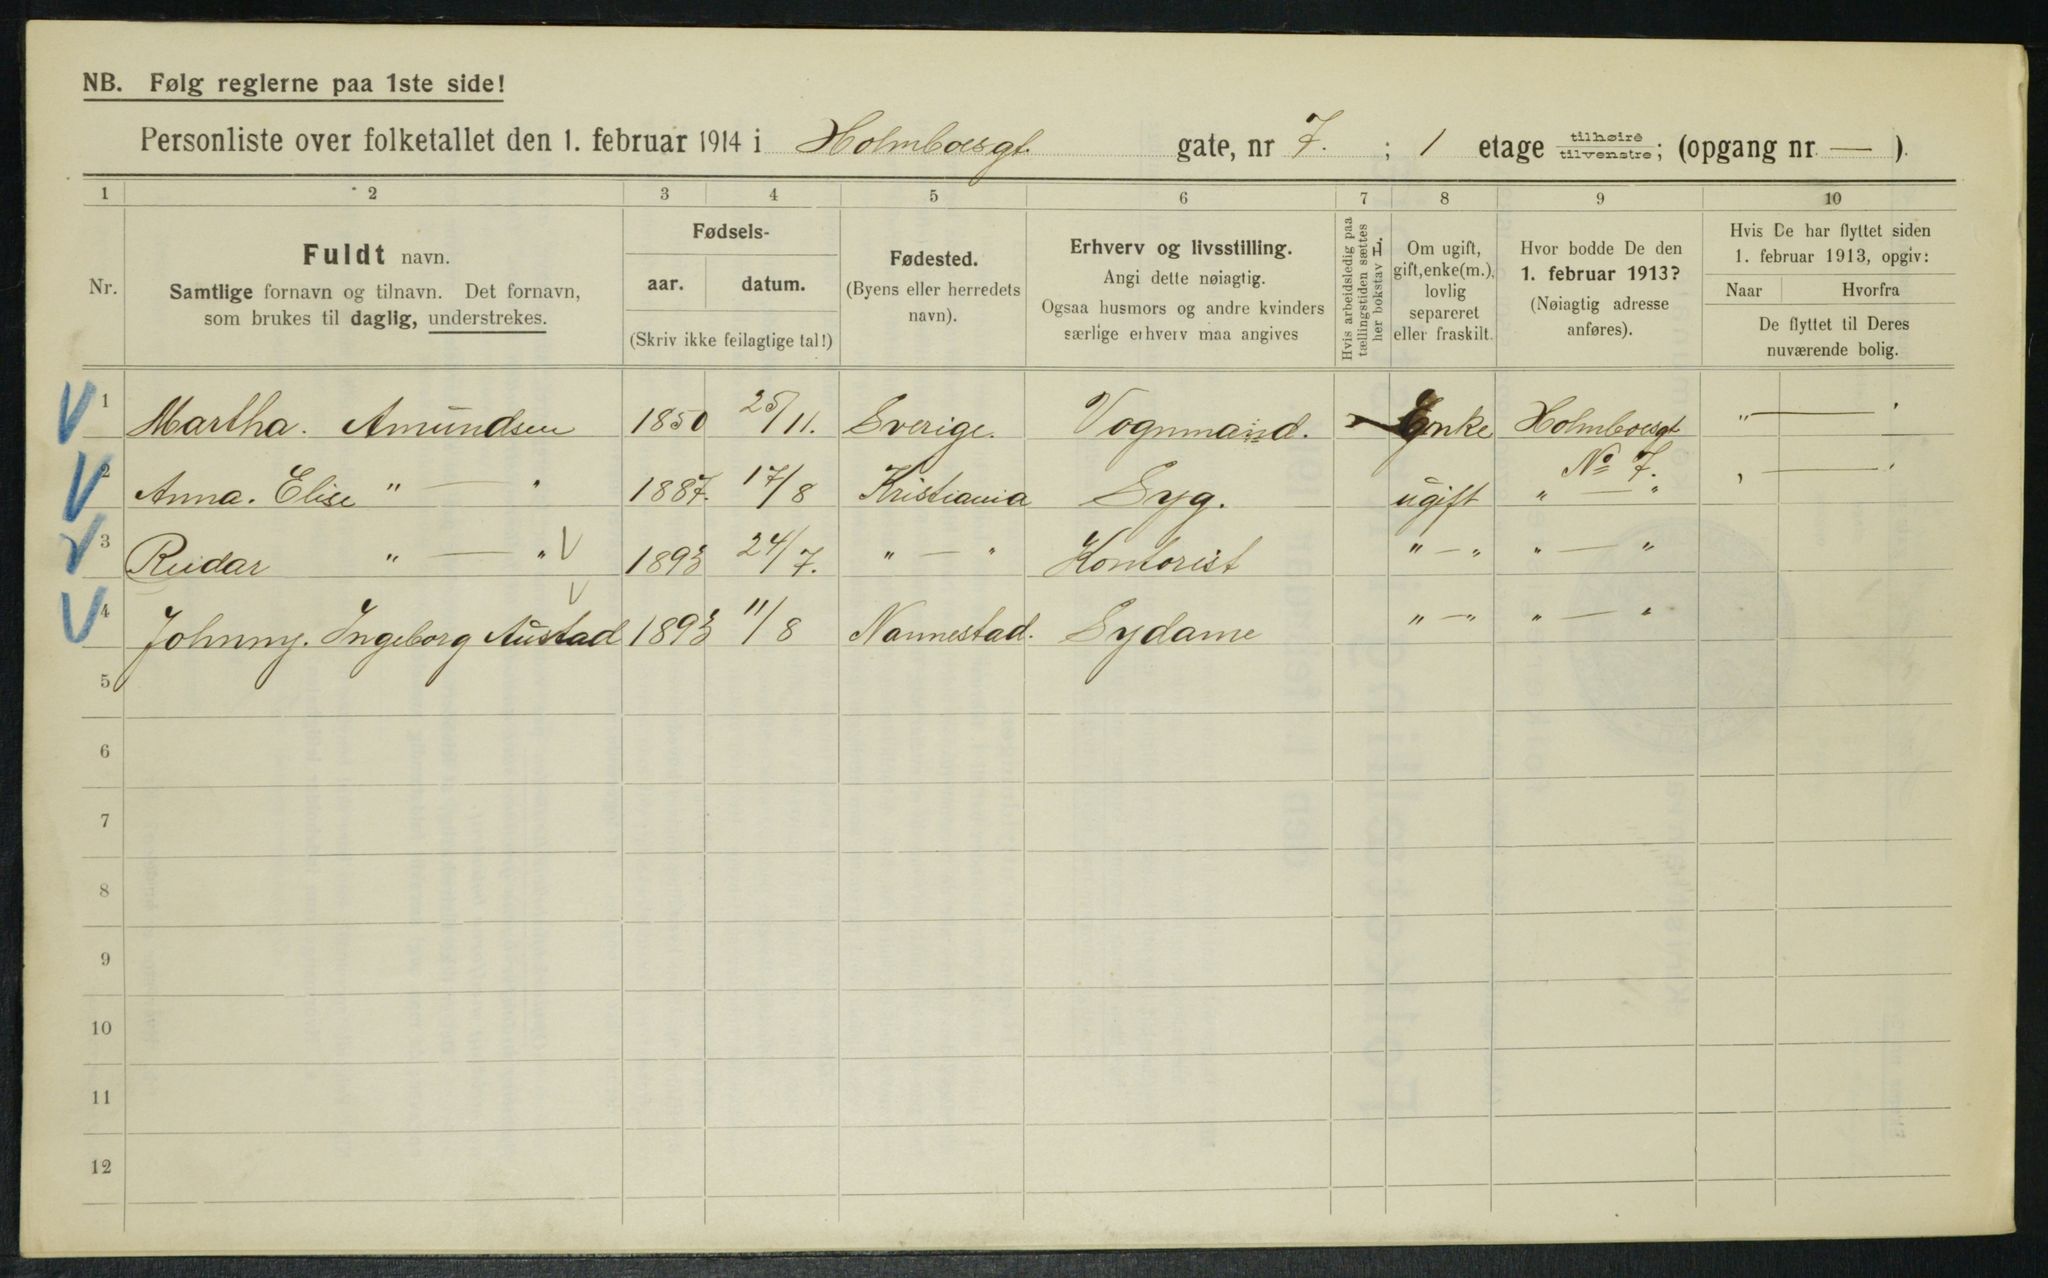 NB. Følg reglerne paa 1ste side!
Personliste over folketallet den 1. februar 1914 i Holmboesgt. gate, nr 7. ; 1 etage tilhøire tilvenstre; (opgang nr. — ).
1 2 3 4 5 6 7 8 9 10
Nr.
Fuldt navn.
Samtlige fornavn og tilnavn. Det fornavn,
som brukes til daglig, understrekes.
Fødsels-
aar. datum.
(Skriv ikke feilagtige tal!)
Fødested.
(Byens eller herredets
navn).
Erhverv og livsstilling.
Angi dette nøiagtig.
Ogsaa husmors og andre kvinders
særlige erhverv maa angives
Hvis arbeidsledig paa
tællingstiden sættes
her bokstav L.
Om ugift,
gift, enke(m.),
lovlig
separeret
eller fraskilt.
Hvor bodde De den
1. februar 1913?
(Nøiagtig adresse
anføres).
Hvis De har flyttet siden
1. februar 1913, opgiv:
Naar Hvorfra
De flyttet til Deres
nuværende bolig.
1 Martha. Amundsen 1850 25/11. Sverige. Vognmand. Enke Holmboesgt " — "
No 7.
2 Anna. Elise " — " 1887. 17/8 Kristiania Syg. ugift " — " " — "
3 Reidar " — " 1893 24/7. " — " Kontorist " — " " — "
4 Johnny. Ingeborg Austad 1893 11/8 Nannestad. Sydame " — " " — "
5
6
7
8
9
10
11
12